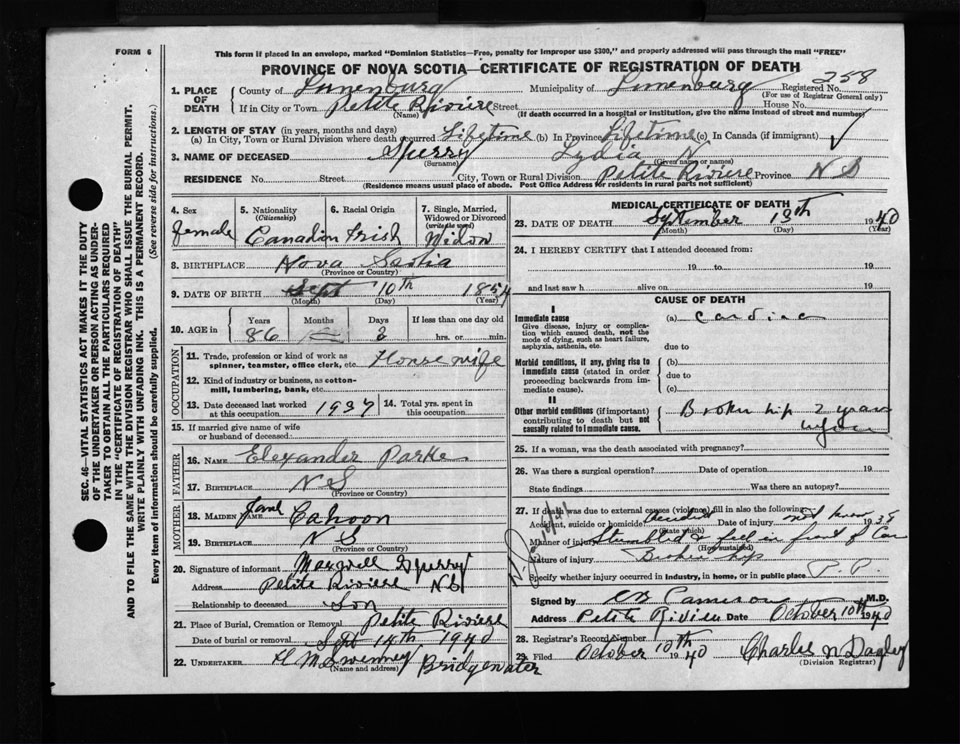 FORM 6
This form if placed in an envelope, marked "Dominion Statistics—Free, penalty for improper use $300," and properly addressed will pass through the mail "FREE"
PROVINCE OF NOVA SCOTIA—CERTIFICATE OF REGISTRATION OF DEATH
SEC. 46—VITAL STATISTICS ACT MAKES IT THE DUTY
OF THE UNDERTAKER OR PERSON ACTING AS UNDER-
TAKER TO OBTAIN ALL THE PARTICULARS REQUIRED
IN THE "CERTIFICATE OF REGISTRATION OF DEATH"
AND TO FILE THE SAME WITH THE DIVISION REGISTRAR WHO SHALL ISSUE THE BURIAL PERMIT.
WRITE PLAINLY WITH UNFADING INK. THIS IS A PERMANENT RECORD.
Every item of information should be carefully supplied. (See reverse side for instructions.)
1. PLACE OF DEATH County of Lunenburg Municipality of Lunenburg Registered No. 258
(For use of Registrar General only)
If in City or Town Petite Riviere Street House No.
(Name) (If death occurred in a hospital or institution, give the name instead of street and number)
2. LENGTH OF STAY (in years, months and days)
(a) In City, Town or Rural Division where death occurred Lifetime (b) In Province Lifetime (c) In Canada (if immigrant) ✓
3. NAME OF DECEASED Sperry Lydia N
(Surname) (Given name or names)
RESIDENCE No. Street City, Town or Rural Division Petite Riviere Province N S
(Residence means usual place of abode. Post Office Address for residents in rural parts not sufficient)
4. Sex female
5. Nationality (Citizenship) Canadian
6. Racial Origin Irish
7. Single, Married, Widowed or Divorced (write the word) Widow
8. BIRTHPLACE Nova Scotia
(Province or Country)
9. DATE OF BIRTH Sept 10th 1854
(Month) (Day) (Year)
10. AGE in Years Months Days If less than one day old
86 3 hrs. or min.
OCCUPATION
11. Trade, profession or kind of work as spinner, teamster, office clerk, etc. Housewife
12. Kind of industry or business, as cotton-mill, lumbering, bank, etc.
13. Date deceased last worked at this occupation 1937
14. Total yrs. spent in this occupation
15. If married give name of wife or husband of deceased:
FATHER
16. NAME Elexander Parke
17. BIRTHPLACE N S
(Province or Country)
MOTHER
18. MAIDEN NAME Jane Cahoon
19. BIRTHPLACE N S
(Province or Country)
20. Signature of informant Maxwell Sperry
Address Petite Riviere N S
Relationship to deceased Son
21. Place of Burial, Cremation or Removal Petite Riviere
Date of burial or removal Sept 14th 1940
22. UNDERTAKER H McSweeney Bridgewater
(Name and address)
MEDICAL CERTIFICATE OF DEATH
23. DATE OF DEATH September 13th 1940
(Month) (Day) (Year)
24. I HEREBY CERTIFY that I attended deceased from:
19 to 19
and last saw h alive on 19
CAUSE OF DEATH
I
Immediate cause (a) Cardiac
Give disease, injury or complication which caused death, not the mode of dying, such as heart failure, asphyxia, asthenia, etc.
due to
Morbid conditions, if any, giving rise to immediate cause (stated in order proceeding backwards from immediate cause).
(b)
due to
(c)
II
Other morbid conditions (if important) contributing to death but not causally related to immediate cause.
Broken hip 2 years ago
25. If a woman, was the death associated with pregnancy?
26. Was there a surgical operation? Date of operation 19
State findings Was there an autopsy?
27. If death was due to external causes (violence) fill in also the following:
Accident, suicide or homicide Accident Date of injury not know 1938
(State which)
Manner of injury Stumbled & fell in front of Car
(How sustained)
Nature of injury Broken hip
Specify whether injury occurred in industry, in home, or in public place P. P.
Signed by Cameron M.D.
Address Petite Riviere Date October 10th 1940
28. Registrar's Record Number
29. Filed October 10th 1940 Charles N Dagley
(Division Registrar)